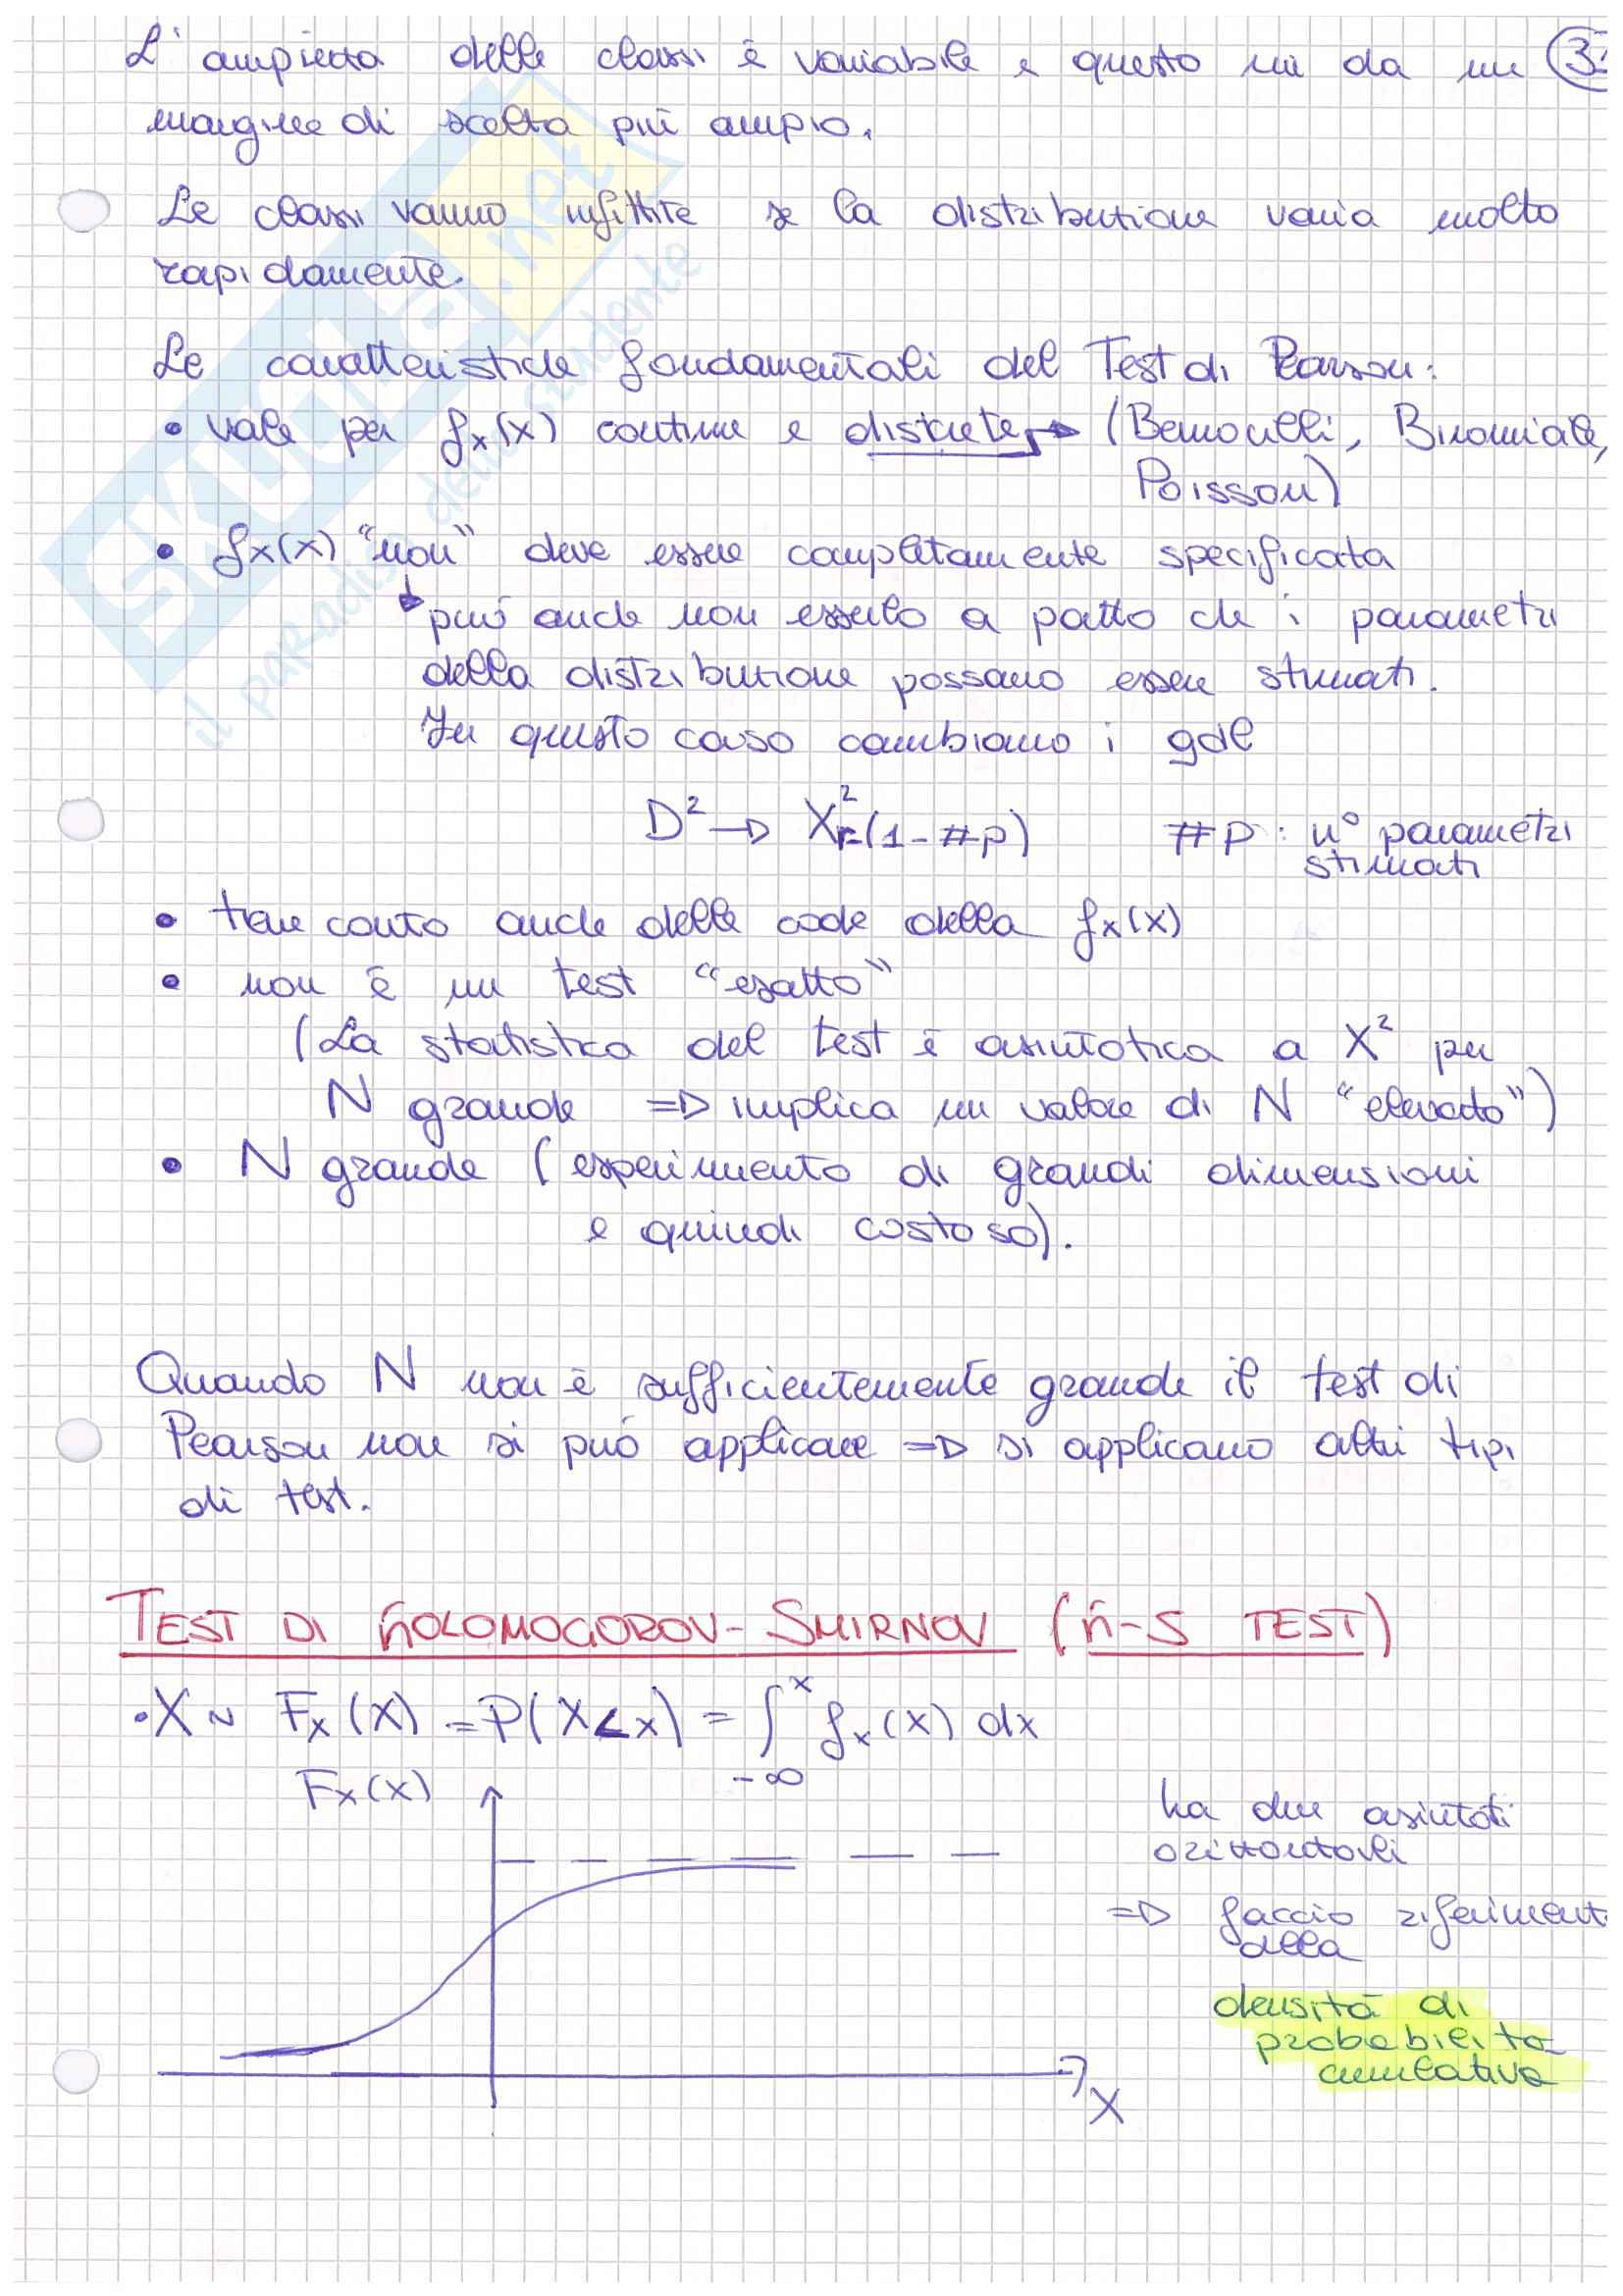 L'ampiezza delle classi è variabile e questo mi da un
margine di scelta più ampio.
Le classi vanno infittite se la distribuzione varia molto
rapidamente.
Le caratteristiche fondamentali del Test di Pearson:
• vale per fx(x) continue e discrete → (Bernoulli, Binomiale,
Poisson)
• fx(x) "non" deve essere completamente specificata
può anche non esserlo a patto che i parametri
della distribuzione possano essere stimati.
In questo caso cambiano i gdl
D² → X²r-(1-#p) #p : n° parametri
stimati
• tiene conto anche delle code della fx(x)
• non è un test "esatto"
(La statistica del test è asintotica a X² per
N grande => implica un valore di N "elevato")
• N grande (esperimento di grandi dimensioni
e quindi costoso).
Quando N non è sufficientemente grande il test di
Pearson non si può applicare => si applicano altri tipi
di test.
TEST DI KOLOMOGOROV-SMIRNOV (K-S TEST)
• X ~ Fx(x) = P(X<x) = ∫ˣ-∞ fx(x) dx
Fx(x)
ha due asintoti
orizzontali
=> faccio riferiment
alla
densità di
probabilità
cumulativa
X
SKUOLA.net
il paradiso dello studente